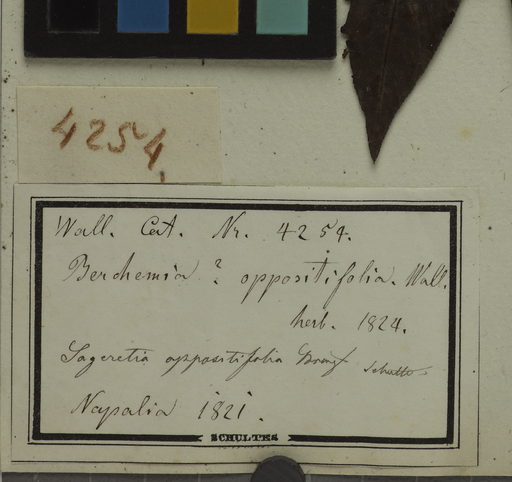 4254.
Wall. Cat. Nr. 4254.
Berchemia ? oppositifolia. Wall.
herb. 1824.
Sageretia oppositifolia Brong
Napalia 1821.
SCHULTES